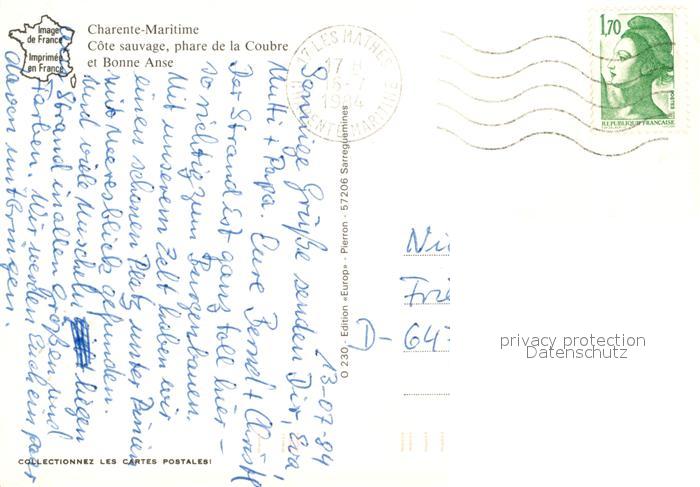 Image
de France
Imprimée
en France
Charente-Maritime
Côte sauvage, phare de la Coubre
et Bonne Anse
17 LES MATHES
17 H
1984
CHARENTE MARITIME
1,70
POSTES
REPUBLIQUE FRANÇAISE
13-07-84
Sonnige Grüße senden Dir, Eva,
Mutti + Papa. Eure Bussel + Christl
Der Strand ist ganz toll hier –
so richtig zum Burgenbauen.
Mit unserem Zelt haben wir
einen schönen Platz unter Pinien
mit Meeresblick gefunden.
Und viele Muscheln liegen
am Strand in allen Größen und
Farben. Wir werden Euch ein paar
davon mitbringen.
O 230 - Edition «Europ» - Pierron - 57206 Sarreguemines
D- 64
privacy protection
Datenschutz
COLLECTIONNEZ LES CARTES POSTALES!